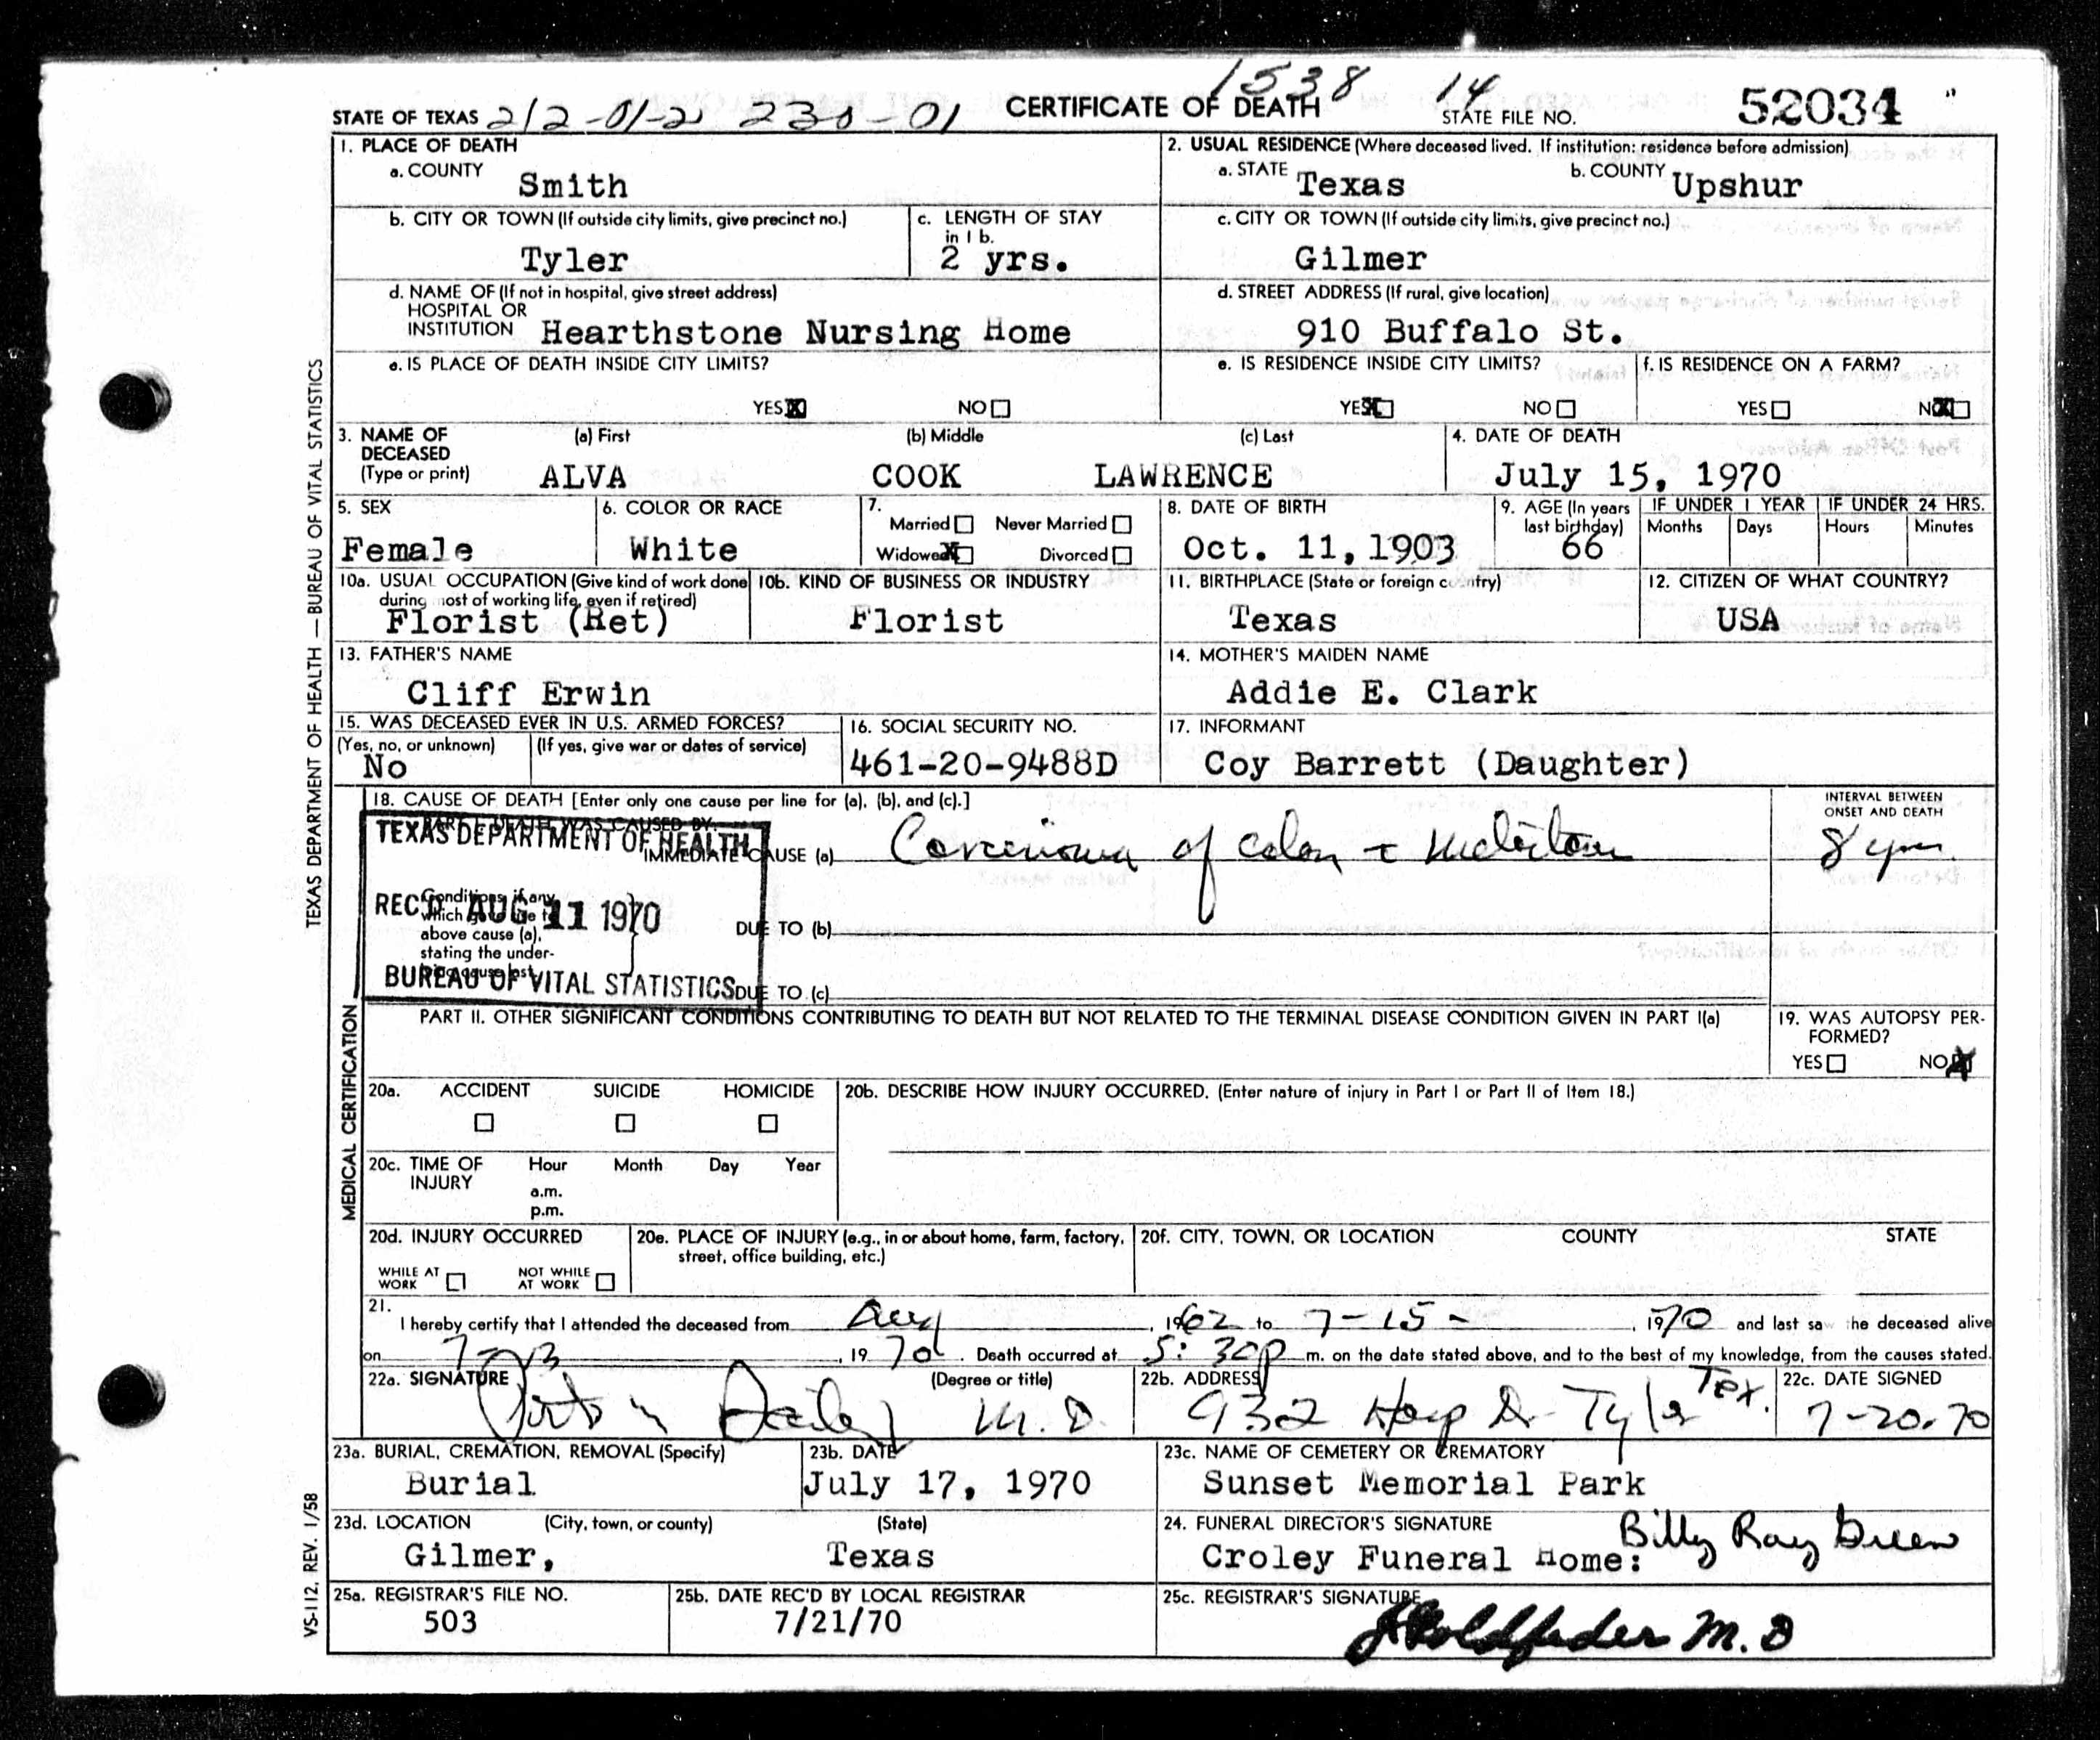 1538 14
STATE OF TEXAS 212-01-2 230-01 CERTIFICATE OF DEATH STATE FILE NO. 52034
1. PLACE OF DEATH
a. COUNTY Smith
2. USUAL RESIDENCE (Where deceased lived. If institution: residence before admission)
a. STATE Texas b. COUNTY Upshur
b. CITY OR TOWN (If outside city limits, give precinct no.) Tyler
c. LENGTH OF STAY in 1 b. 2 yrs.
c. CITY OR TOWN (If outside city limits, give precinct no.) Gilmer
d. NAME OF (If not in hospital, give street address)
HOSPITAL OR
INSTITUTION Hearthstone Nursing Home
d. STREET ADDRESS (If rural, give location)
910 Buffalo St.
e. IS PLACE OF DEATH INSIDE CITY LIMITS?
YES X NO
e. IS RESIDENCE INSIDE CITY LIMITS?
YES X NO
f. IS RESIDENCE ON A FARM?
YES NO X
3. NAME OF DECEASED (Type or print)
(a) First (b) Middle (c) Last
ALVA COOK LAWRENCE
4. DATE OF DEATH
July 15, 1970
5. SEX
Female
6. COLOR OR RACE
White
7.
Married Never Married
Widowed X Divorced
8. DATE OF BIRTH
Oct. 11, 1903
9. AGE (In years last birthday)
66
IF UNDER 1 YEAR IF UNDER 24 HRS.
Months Days Hours Minutes
10a. USUAL OCCUPATION (Give kind of work done during most of working life, even if retired)
Florist (Ret)
10b. KIND OF BUSINESS OR INDUSTRY
Florist
11. BIRTHPLACE (State or foreign country)
Texas
12. CITIZEN OF WHAT COUNTRY?
USA
13. FATHER'S NAME
Cliff Erwin
14. MOTHER'S MAIDEN NAME
Addie E. Clark
15. WAS DECEASED EVER IN U.S. ARMED FORCES?
(Yes, no, or unknown) (If yes, give war or dates of service)
No
16. SOCIAL SECURITY NO.
461-20-9488D
17. INFORMANT
Coy Barrett (Daughter)
18. CAUSE OF DEATH [Enter only one cause per line for (a), (b), and (c).]
PART I. DEATH WAS CAUSED BY:
IMMEDIATE CAUSE (a) Carcinoma of colon
INTERVAL BETWEEN ONSET AND DEATH
8 yrs.
TEXAS DEPARTMENT OF HEALTH
REC'D AUG 11 1970
BUREAU OF VITAL STATISTICS
Conditions, if any,
which gave rise to
above cause (a),
stating the under-
lying cause last.
DUE TO (b)
DUE TO (c)
PART II. OTHER SIGNIFICANT CONDITIONS CONTRIBUTING TO DEATH BUT NOT RELATED TO THE TERMINAL DISEASE CONDITION GIVEN IN PART I(a)
19. WAS AUTOPSY PER-
FORMED?
YES NO X
20a. ACCIDENT SUICIDE HOMICIDE
20b. DESCRIBE HOW INJURY OCCURRED. (Enter nature of injury in Part I or Part II of Item 18.)
20c. TIME OF INJURY
Hour Month Day Year
a.m.
p.m.
20d. INJURY OCCURRED
WHILE AT WORK NOT WHILE AT WORK
20e. PLACE OF INJURY (e.g., in or about home, farm, factory, street, office building, etc.)
20f. CITY, TOWN, OR LOCATION COUNTY STATE
21.
I hereby certify that I attended the deceased from Aug, 1962 to 7-15-, 1970 and last saw the deceased alive
on 7-13, 1970. Death occurred at 5:30p m. on the date stated above, and to the best of my knowledge, from the causes stated.
22a. SIGNATURE (Degree or title)
M.D.
22b. ADDRESS
932 Hosp Dr Tyler Tex.
22c. DATE SIGNED
7-20-70
23a. BURIAL, CREMATION, REMOVAL (Specify)
Burial
23b. DATE
July 17, 1970
23c. NAME OF CEMETERY OR CREMATORY
Sunset Memorial Park
23d. LOCATION (City, town, or county) (State)
Gilmer, Texas
24. FUNERAL DIRECTOR'S SIGNATURE
Croley Funeral Home: Billy Ray Green
25a. REGISTRAR'S FILE NO.
503
25b. DATE REC'D BY LOCAL REGISTRAR
7/21/70
25c. REGISTRAR'S SIGNATURE
Goldfeder M.D
TEXAS DEPARTMENT OF HEALTH — BUREAU OF VITAL STATISTICS
MEDICAL CERTIFICATION
VS-112. REV. 1/58